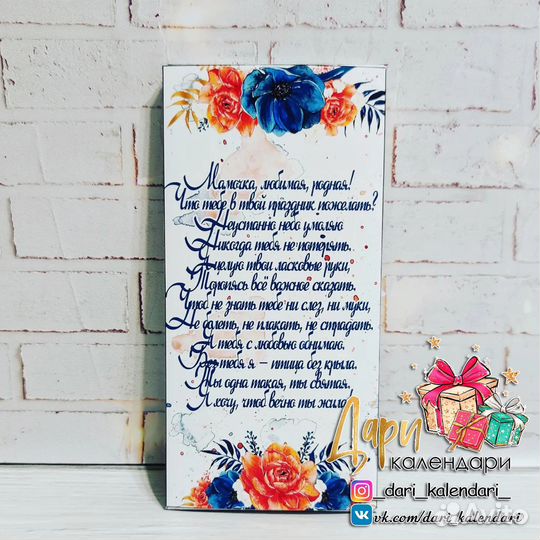 Мамочка, любимая, родная!
Что тебе в твой праздник пожелать?
Неустанно небо умоляю
Никогда тебя не потерять.
Целую твои ласковые руки,
Торопясь всё важное сказать.
Чтоб не знать тебе ни слез, ни муки,
Не болеть, не плакать, не страдать.
Я тебя с любовью обнимаю.
Без тебя я – птица без крыла.
Ты одна такая, ты святая.
Я хочу, чтоб вечно ты жила
Дари
календари
_dari_kalendari_
vk.com/dari_kalendari
Avito